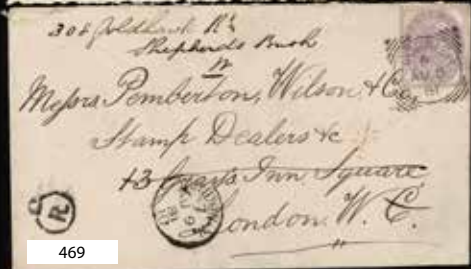 308 Goldhawk Rd
Shepherds Bush
W
Messrs Pemberton, Wilson & Co,
Stamp Dealers &c
13 Grays Inn Square
London. W. C.
R
469